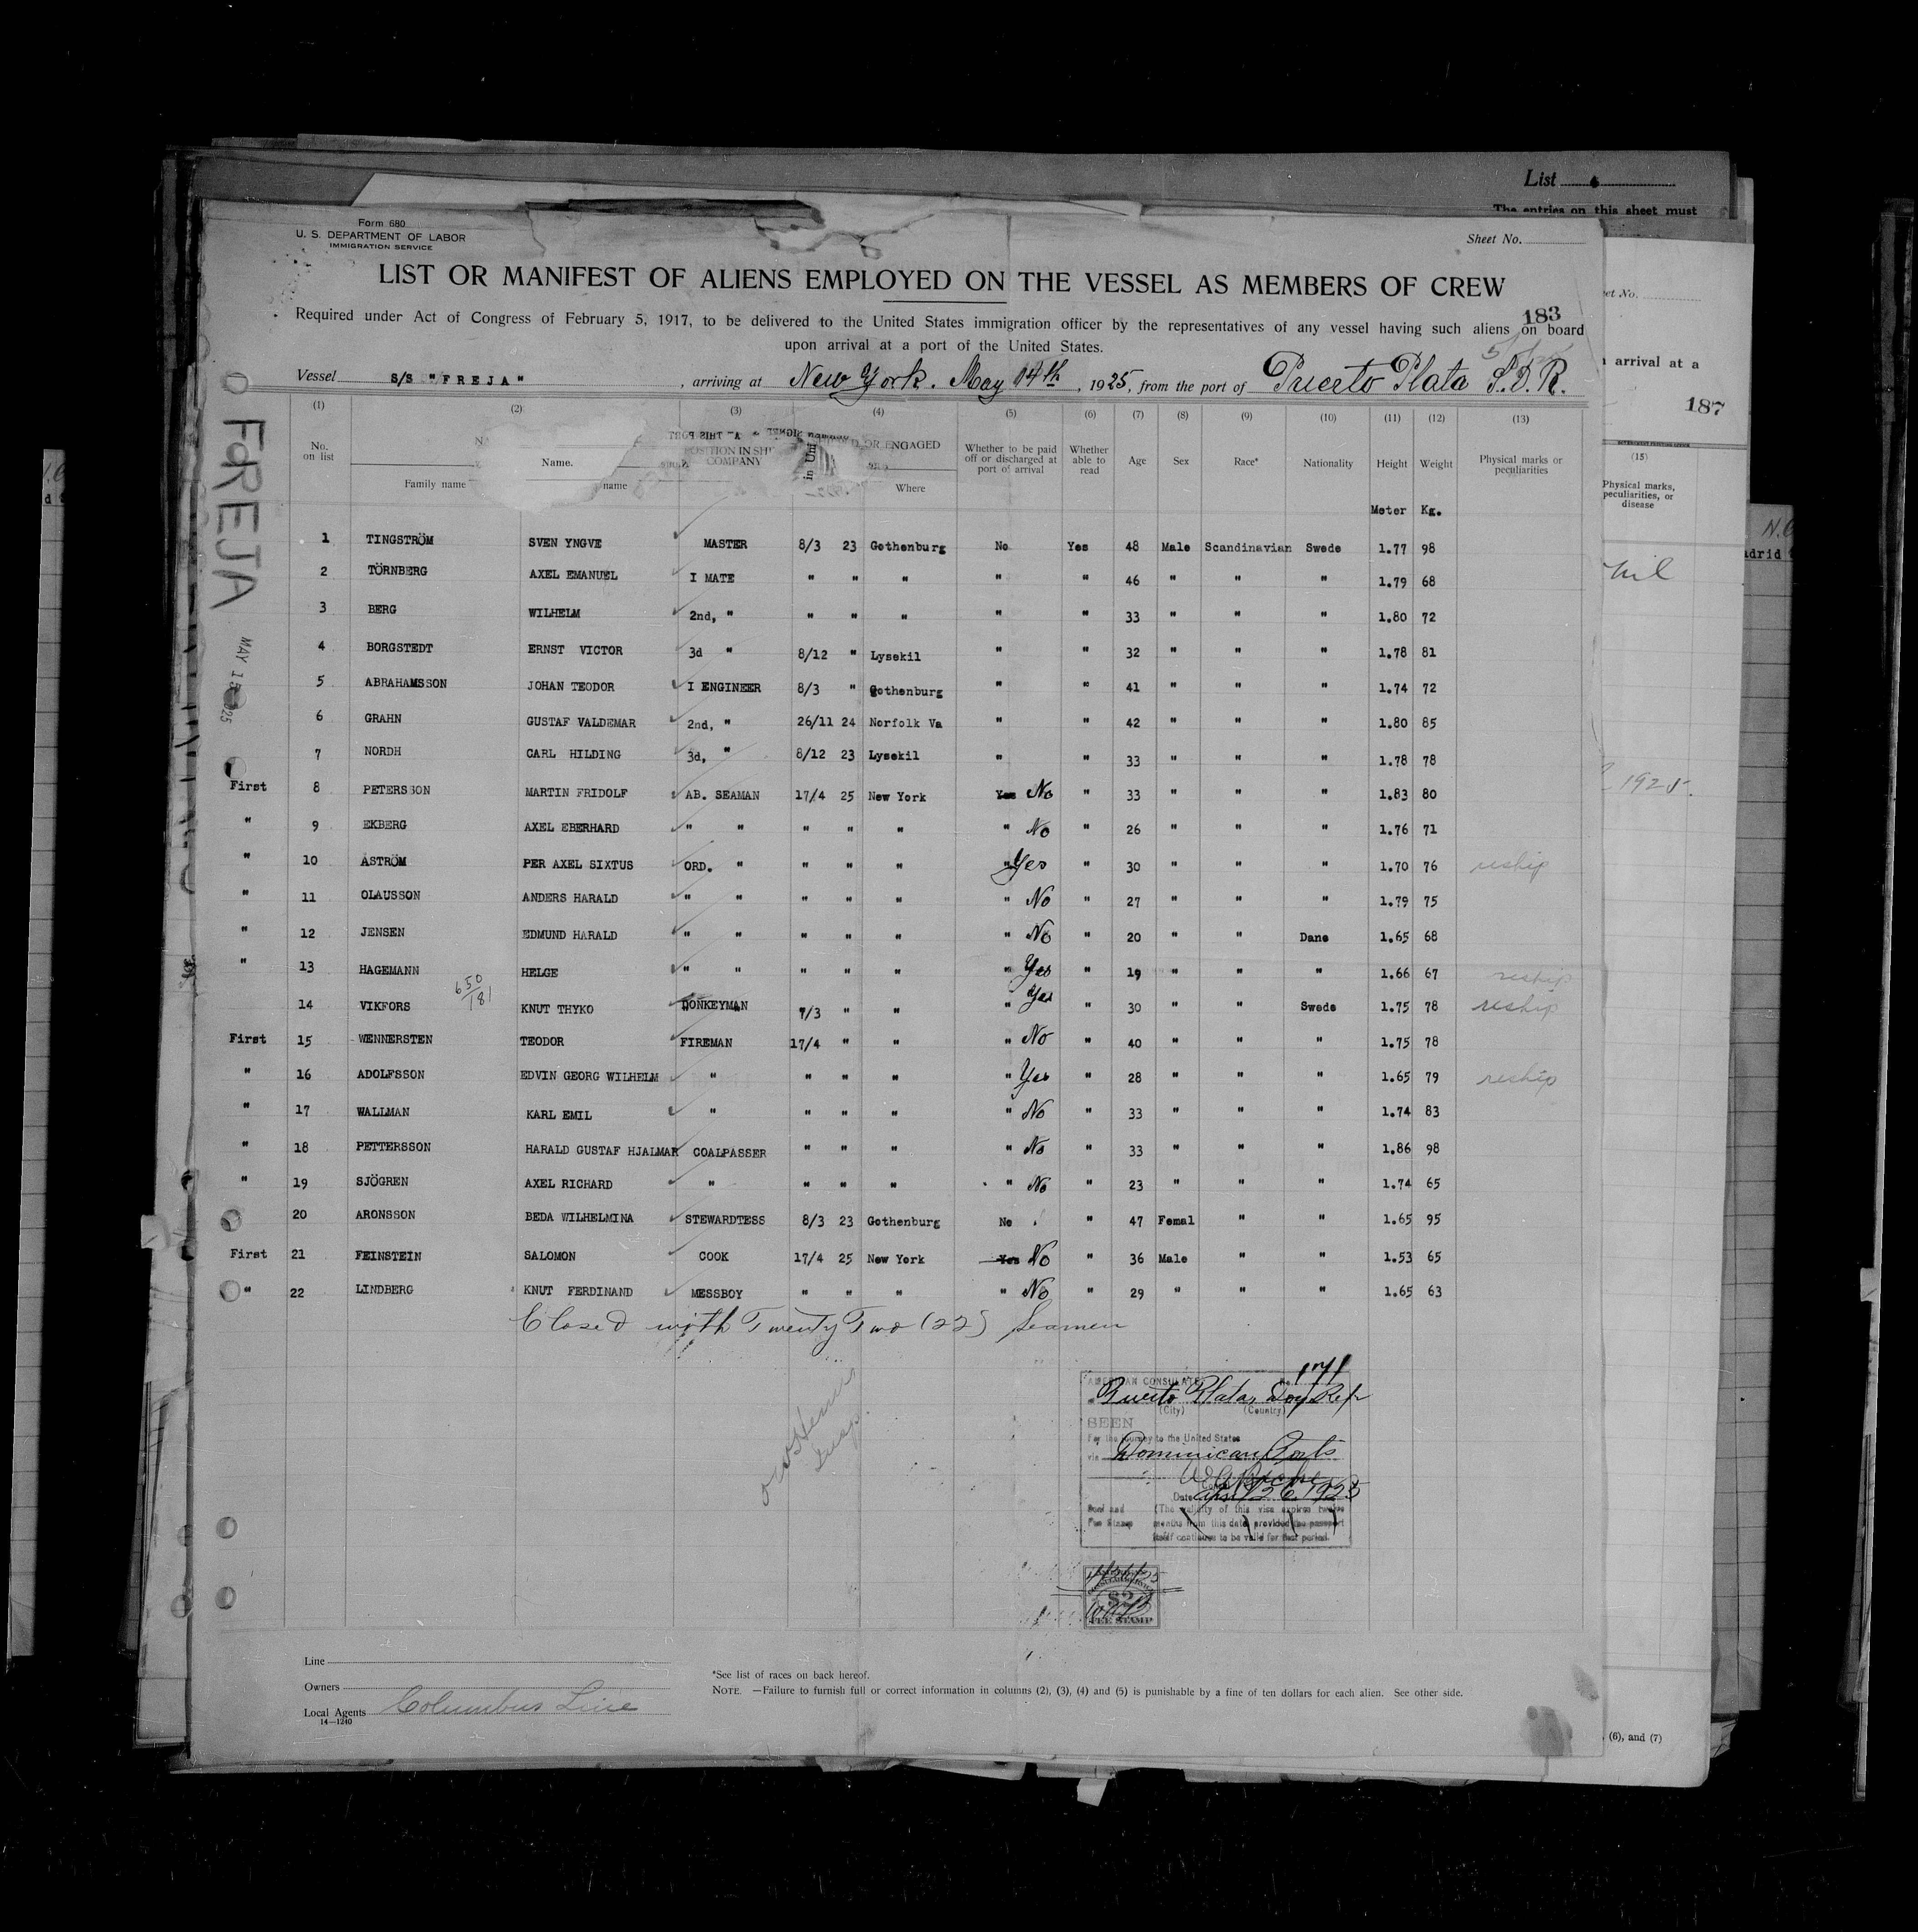 List
The entries on this sheet must
Form 680
U. S. DEPARTMENT OF LABOR
IMMIGRATION SERVICE
Sheet No.
LIST OR MANIFEST OF ALIENS EMPLOYED ON THE VESSEL AS MEMBERS OF CREW
183
Required under Act of Congress of February 5, 1917, to be delivered to the United States immigration officer by the representatives of any vessel having such aliens on board
upon arrival at a port of the United States.
Vessel S/S "FREJA", arriving at New York. May 14th, 1925, from the port of Puerto Plata S.D.R.
(1) (2) (3) (4) (5) (6) (7) (8) (9) (10) (11) (12) (13)
No. on list Family name Name. name POSITION IN SHI COMPANY OR ENGAGED Where Whether to be paid off or discharged at port of arrival Whether able to read Age Sex Race* Nationality Height Weight Physical marks or peculiarities
Meter Kg.
1 TINGSTRÖM SVEN YNGVE MASTER 8/3 23 Gothenburg No Yes 48 Male Scandinavian Swede 1.77 98
2 TÖRNBERG AXEL EMANUEL I MATE " " " " " 46 " " " 1.79 68
3 BERG WILHELM 2nd, " " " " " " 33 " " " 1.80 72
4 BORGSTEDT ERNST VICTOR 3d " 8/12 " Lysekil " " 32 " " " 1.78 81
5 ABRAHAMSSON JOHAN TEODOR I ENGINEER 8/3 " Gothenburg " " 41 " " " 1.74 72
6 GRAHN GUSTAF VALDEMAR 2nd, " 26/11 24 Norfolk Va " " 42 " " " 1.80 85
7 NORDH CARL HILDING 3d, " 8/12 23 Lysekil " " 33 " " " 1.78 78
First 8 PETERSSON MARTIN FRIDOLF AB. SEAMAN 17/4 25 New York Yes No " 33 " " " 1.83 80
" 9 EKBERG AXEL EBERHARD " " " " " " No " 26 " " " 1.76 71
" 10 ÅSTRÖM PER AXEL SIXTUS ORD. " " " " " Yes " 30 " " " 1.70 76 reship
" 11 OLAUSSON ANDERS HARALD " " " " " " No " 27 " " " 1.79 75
" 12 JENSEN EDMUND HARALD " " " " " " No " 20 " " Dane 1.65 68
" 13 HAGEMANN HELGE " " " " " " Yes " 19 " " " 1.66 67 reship
650/181
14 VIKFORS KNUT THYKO DONKEYMAN 7/3 " " " Yes " 30 " " Swede 1.75 78 reship
First 15 WENNERSTEN TEODOR FIREMAN 17/4 " " " No " 40 " " " 1.75 78
" 16 ADOLFSSON EDVIN GEORG WILHELM " " " " " Yes " 28 " " " 1.65 79 reship
" 17 WALLMAN KARL EMIL " " " " " No " 33 " " " 1.74 83
" 18 PETTERSSON HARALD GUSTAF HJALMAR COALPASSER " " " " No " 33 " " " 1.86 98
" 19 SJÖGREN AXEL RICHARD " " " " " No " 23 " " " 1.74 65
20 ARONSSON BEDA WILHELMINA STEWARDTESS 8/3 23 Gothenburg No " 47 Femal " " 1.65 95
First 21 FEINSTEIN SALOMON COOK 17/4 25 New York Yes No " 36 Male " " 1.53 65
" 22 LINDBERG KNUT FERDINAND MESSBOY " " " " No " 29 " " " 1.65 63
Closed with Twenty Two (22) Seamen
FREJA
MAY 15 1925
171
AMERICAN CONSULATE
Puerto Plata, Dom Rep
(City) (Country)
SEEN
For the journey to the United States
via Dominican Ports
Date April 26 1925
(The validity of this visa expires twelve
Fee Stamp months from this date provided the passport
itself continues to be valid for that period.
4/26/25
$2
FEE STAMP
Line
Owners
Local Agents Columbus Line
14—1240
*See list of races on back hereof.
NOTE. —Failure to furnish full or correct information in columns (2), (3), (4) and (5) is punishable by a fine of ten dollars for each alien. See other side.
et No.
arrival at a
187
(15)
Physical marks,
peculiarities, or
disease
nil
1925.
(6), and (7)
adrid